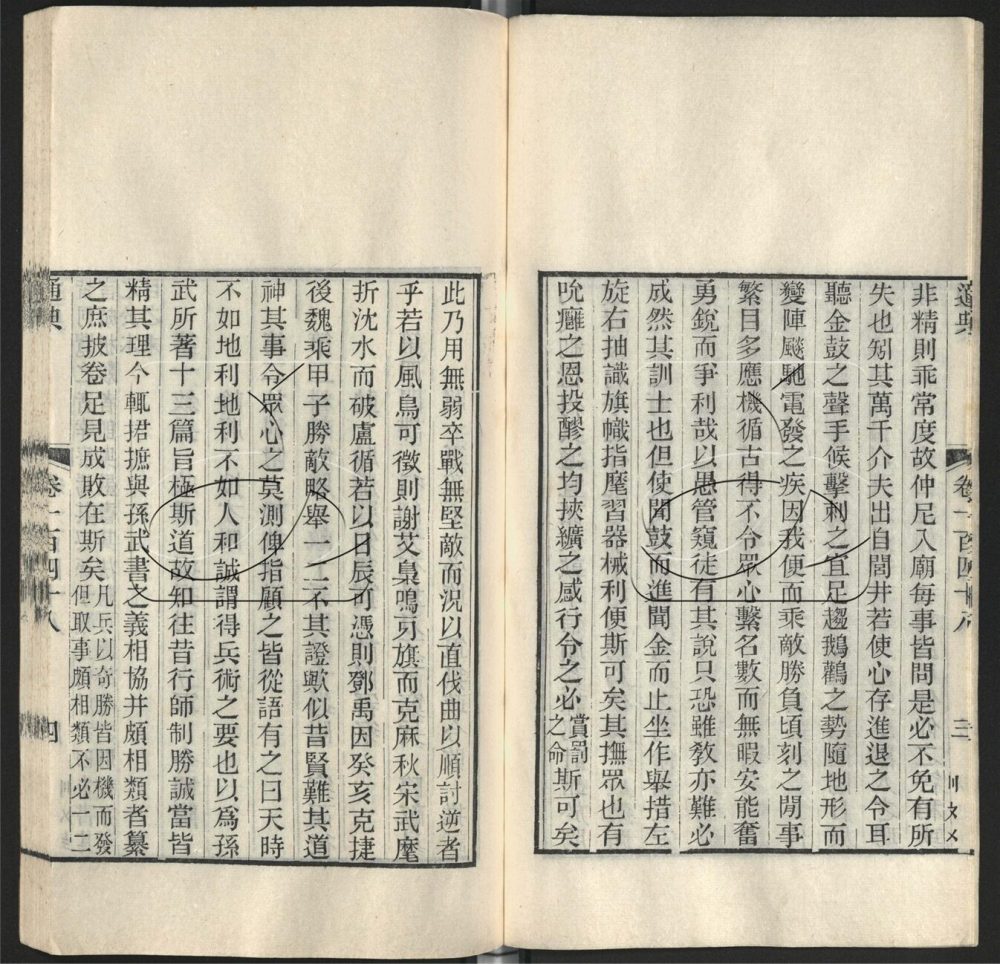 通典
卷一百四十八
三
非精則乖常度故仲尼入廟每事皆問是必不免有所
失也矧其萬千介夫出自閭井若使心存進退之令耳
聽金鼓之聲手候擊刺之宜足趨鵝鸛之勢隨地形而
變陣颷馳電發之疾因我便而乘敵勝負頃刻之閒事
繁目多應機循古得不令眾心繫名數而無暇安能奮
勇銳而爭利哉以愚管窺徒有其說只恐雖敎亦難必
成然其訓士也但使聞鼓而進聞金而止坐作舉措左
旋右抽識旗幟指麾習器械利便斯可矣其撫眾也有
吮癰之恩投醪之均挾纊之感行令之必賞罰之命斯可矣
此乃用無弱卒戰無堅敵而況以直伐曲以順討逆者
乎若以風鳥可徵則謝艾梟鳴牙旗而克麻秋宋武麾
折沈水而破盧循若以日辰可憑則鄧禹因癸亥克捷
後魏乘甲子勝敵略舉一二不其證歟似昔賢難其道
神其事令眾心之莫測俾指顧之皆從語有之曰天時
不如地利地利不如人和誠謂得兵術之要也以爲孫
武所著十三篇旨極斯道故知往昔行師制勝誠當皆
精其理今輒捃摭與孫武書之義相協并頗相類者纂
之庶披卷足見成敗在斯矣凡兵以奇勝皆因機而發但取事頗相類不必一二
通典
卷一百四十八
四